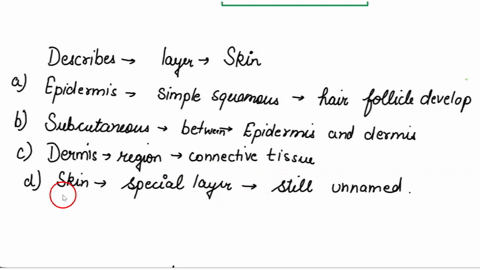 Describes → layer → Skin
a) Epidermis → simple squamous → hair follicle develop
b) Subcutaneous → between → Epidermis and dermis
c) Dermis → region → connective tissue
d) Skin → special layer → still unnamed.